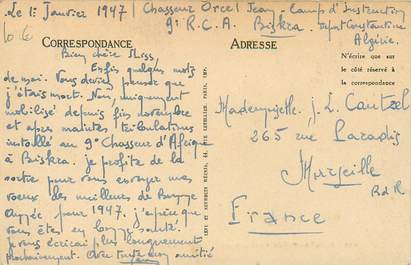 Le 1er Janvier 1947
Chasseur Orcel Jean - Camp d'Instruction
9e R.C.A. Biskra. Dépt Constantine
Algérie.
6 €
CORRESPONDANCE
Bien chère Miss,
Enfin quelques mots
de moi. Vous deviez penser que
j'étais mort. Non, uniquement
mobilisé depuis fin novembre
et après maintes tribulations
installé au 9e Chasseur d'Afrique
à Biskra. je profite de la
sortie pour vous envoyer mes
voeux des meilleurs de Bonne
Année pour 1947. j'espère que
vous êtes en bonne santé.
je vous écrirai plus longuement
prochainement. Avec toute mon amitié
Jean
LEVY ET NEURDEIN RÉUNIS, 44, RUE LETELLIER, PARIS, IMP.
ADRESSE
N'écrire que sur
le côté réservé à
la correspondance
Mademoiselle J. L. Cautzel
265 rue Paradis
Marseille
B d R
France